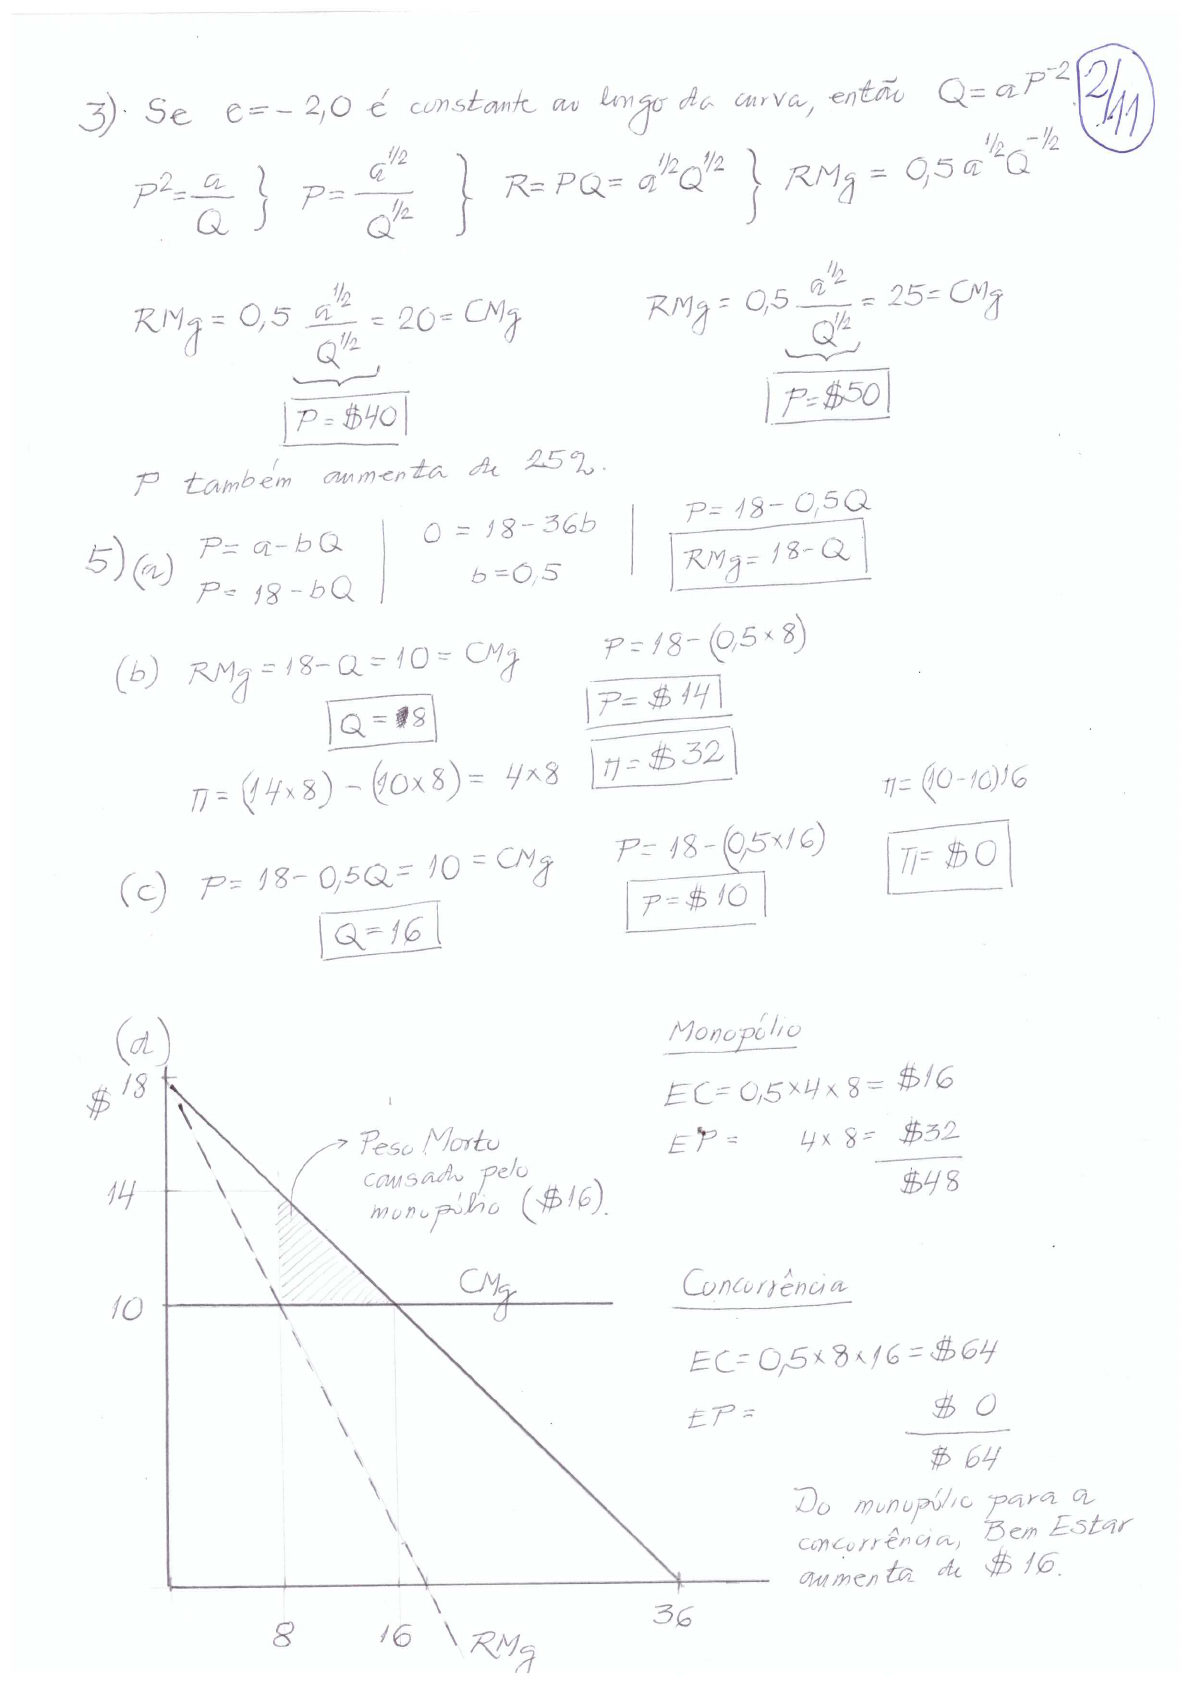 2/11
3). Se e = - 2,0 é constante ao longo da curva, então Q = a P^-2.
P² = a/Q } P = a^1/2 / Q^1/2 } R = PQ = a^1/2 Q^1/2 } RMg = 0,5 a^1/2 Q^-1/2
RMg = 0,5 a^1/2 / Q^1/2 = 20 = CMg RMg = 0,5 a^1/2 / Q^1/2 = 25 = CMg
P = $40 P = $50
P também aumenta de 25%.
5) (a) P = a - bQ | 0 = 18 - 36b | P = 18 - 0,5Q
P = 18 - bQ | b = 0,5 | RMg = 18 - Q
(b) RMg = 18 - Q = 10 = CMg P = 18 - (0,5 × 8)
Q = 8 P = $14
π = (14 × 8) - (10 × 8) = 4 × 8 π = $32
(c) P = 18 - 0,5Q = 10 = CMg P = 18 - (0,5 × 16) π = (10 - 10)16
Q = 16 P = $10 π = $0
(d)
$ 18
14
10
Peso Morto
causado pelo
monopólio ($16).
CMg
8 16 RMg 36
Monopólio
EC = 0,5 × 4 × 8 = $16
EP = 4 × 8 = $32
$48
Concorrência
EC = 0,5 × 8 × 16 = $64
EP = $ 0
$ 64
Do monopólio para a
concorrência, Bem Estar
aumenta de $16.